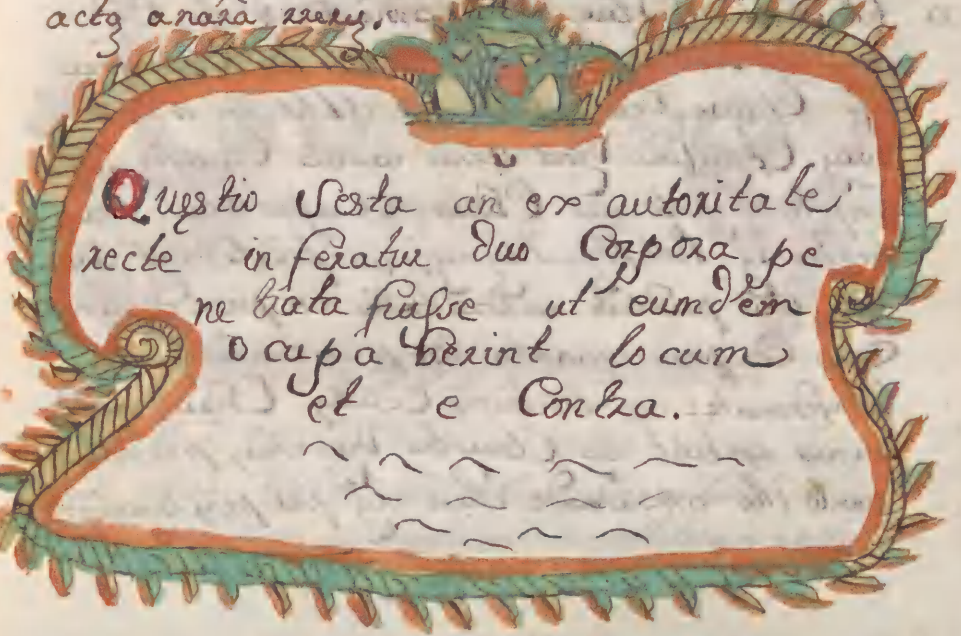 Quęstio Sesta an ex autoritate
recte inferatur duo Corpora pe
netrata fuisse ut eumdem
ocupaberint locum
et e Contra.